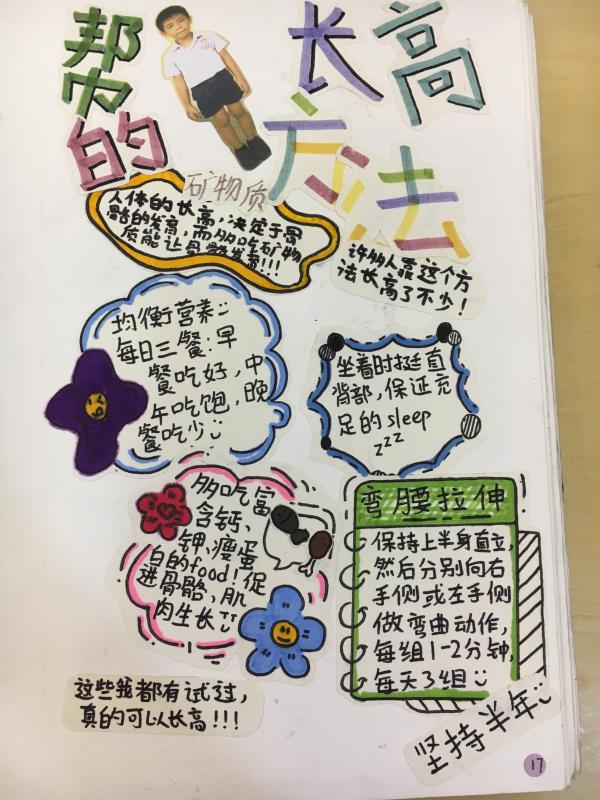 帮 长高
的 方法
矿物质
人体的长高，决定于骨
骼的发育，而多吃矿物
质能让骨骼发育!!!
许多人靠这个方
法长高了不少!
均衡营养:
每日三餐:早
餐吃好，中
午吃饱，晚
餐吃少
坐着时挺直
背部，保证充
足的sleep
zzz
多吃富
含钙、
钾、瘦蛋
白的food!促
进骨骼、肌
肉生长
弯腰拉伸
保持上半身直立，
然后分别向右
手侧或左手侧
做弯曲动作，
每组1-2分钟，
每天3组
这些我都有试过，
真的可以长高!!!
坚持半年
17